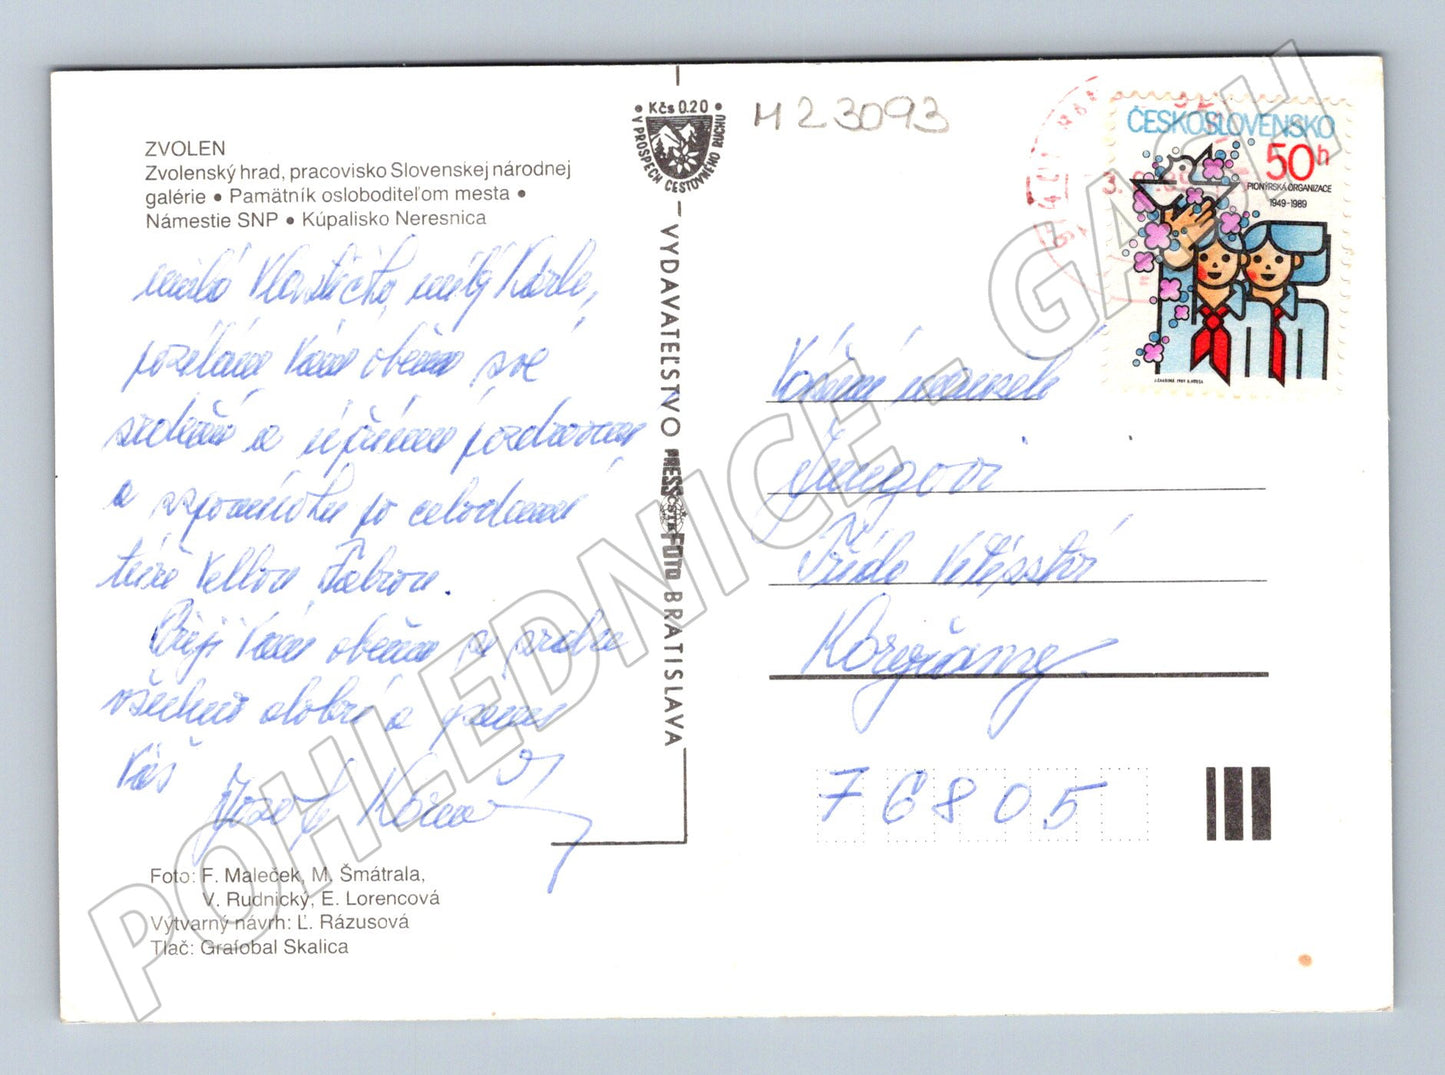 ZVOLEN
Zvolenský hrad, pracovisko Slovenskej národnej
galérie • Pamätník osloboditeľom mesta •
Námestie SNP • Kúpalisko Neresnica
Kčs 0.20
V PROSPECH CESTOVNÉHO RUCHU
M23093
ČESKOSLOVENSKO
50h
PIONÝRSKÁ ORGANIZACE
1949-1989
milá Vlastičko, milý Karle,
posílám Vám oběma své
srdečné a upřímné
a vzpomínku po celodenní
túře
Přeji Vám oběma ze srdce
všechno dobré a
Váš
Josef
VYDAVATEĽSTVO PRESSFOTO BRATISLAVA
ČSTK
Vážení manželé
Jungovi
Třída Vítězství
Koryčany.
76805
Foto: F. Maleček, M. Šmátrala,
V. Rudnický, E. Lorencová
Výtvarný návrh: Ľ. Rázusová
Tlač: Grafobal Skalica
POHLEDNICE - GASH